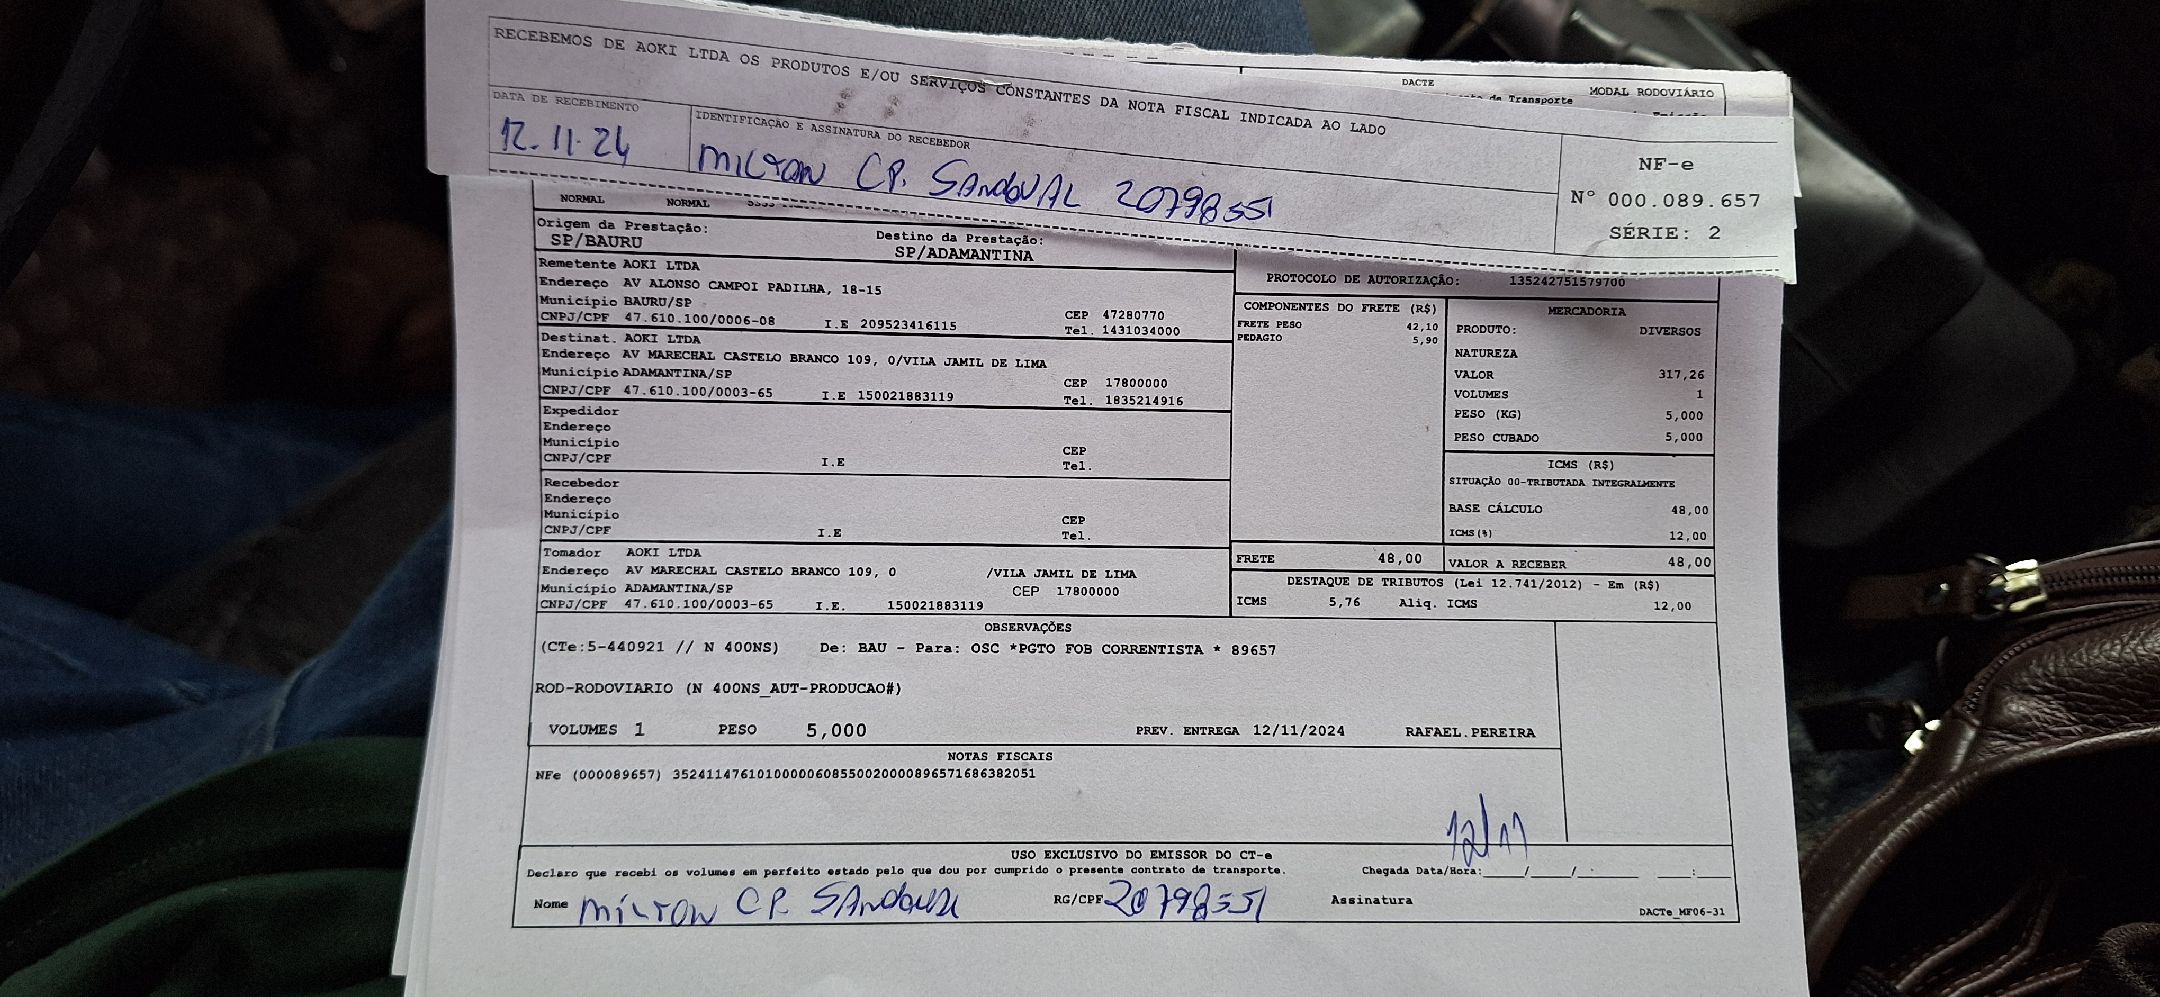 RECEBEMOS DE AOKI LTDA OS PRODUTOS E/OU SERVIÇOS CONSTANTES DA NOTA FISCAL INDICADA AO LADO
DATA DE RECEBIMENTO
12.11.24
IDENTIFICAÇÃO E ASSINATURA DO RECEBEDOR
MILTON CP. SANDOVAL 20798551
NF-e
Nº 000.089.657
SÉRIE: 2
DACTE
MODAL RODOVIÁRIO
de Transporte
NORMAL NORMAL
Origem da Prestação:
SP/BAURU
Destino da Prestação:
SP/ADAMANTINA
Remetente AOKI LTDA
Endereço AV ALONSO CAMPOI PADILHA, 18-15
Município BAURU/SP CEP 47280770
CNPJ/CPF 47.610.100/0006-08 I.E 209523416115 Tel. 1431034000
Destinat. AOKI LTDA
Endereço AV MARECHAL CASTELO BRANCO 109, 0/VILA JAMIL DE LIMA
Município ADAMANTINA/SP CEP 17800000
CNPJ/CPF 47.610.100/0003-65 I.E 150021883119 Tel. 1835214916
Expedidor
Endereço
Município CEP
CNPJ/CPF I.E Tel.
Recebedor
Endereço
Município CEP
CNPJ/CPF I.E Tel.
Tomador AOKI LTDA
Endereço AV MARECHAL CASTELO BRANCO 109, 0 /VILA JAMIL DE LIMA
Município ADAMANTINA/SP CEP 17800000
CNPJ/CPF 47.610.100/0003-65 I.E. 150021883119
PROTOCOLO DE AUTORIZAÇÃO: 135242751579700
COMPONENTES DO FRETE (R$)
FRETE PESO 42,10
PEDAGIO 5,90
MERCADORIA
PRODUTO: DIVERSOS
NATUREZA
VALOR 317,26
VOLUMES 1
PESO (KG) 5,000
PESO CUBADO 5,000
ICMS (R$)
SITUAÇÃO 00-TRIBUTADA INTEGRALMENTE
BASE CÁLCULO 48,00
ICMS(%) 12,00
FRETE 48,00 VALOR A RECEBER 48,00
DESTAQUE DE TRIBUTOS (Lei 12.741/2012) - Em (R$)
ICMS 5,76 Aliq. ICMS 12,00
OBSERVAÇÕES
(CTe:5-440921 // N 400NS) De: BAU - Para: OSC *PGTO FOB CORRENTISTA * 89657
ROD-RODOVIARIO (N 400NS_AUT-PRODUCAO#)
VOLUMES 1 PESO 5,000 PREV. ENTREGA 12/11/2024 RAFAEL.PEREIRA
NOTAS FISCAIS
NFe (000089657) 35241147610100000608550020000896571686382051
12/11
USO EXCLUSIVO DO EMISSOR DO CT-e
Declaro que recebi os volumes em perfeito estado pelo que dou por cumprido o presente contrato de transporte. Chegada Data/Hora:____/____/______ ____:____
Nome MILTON CP. SANDOVAL RG/CPF 20798551 Assinatura
DACTe_MF06-31